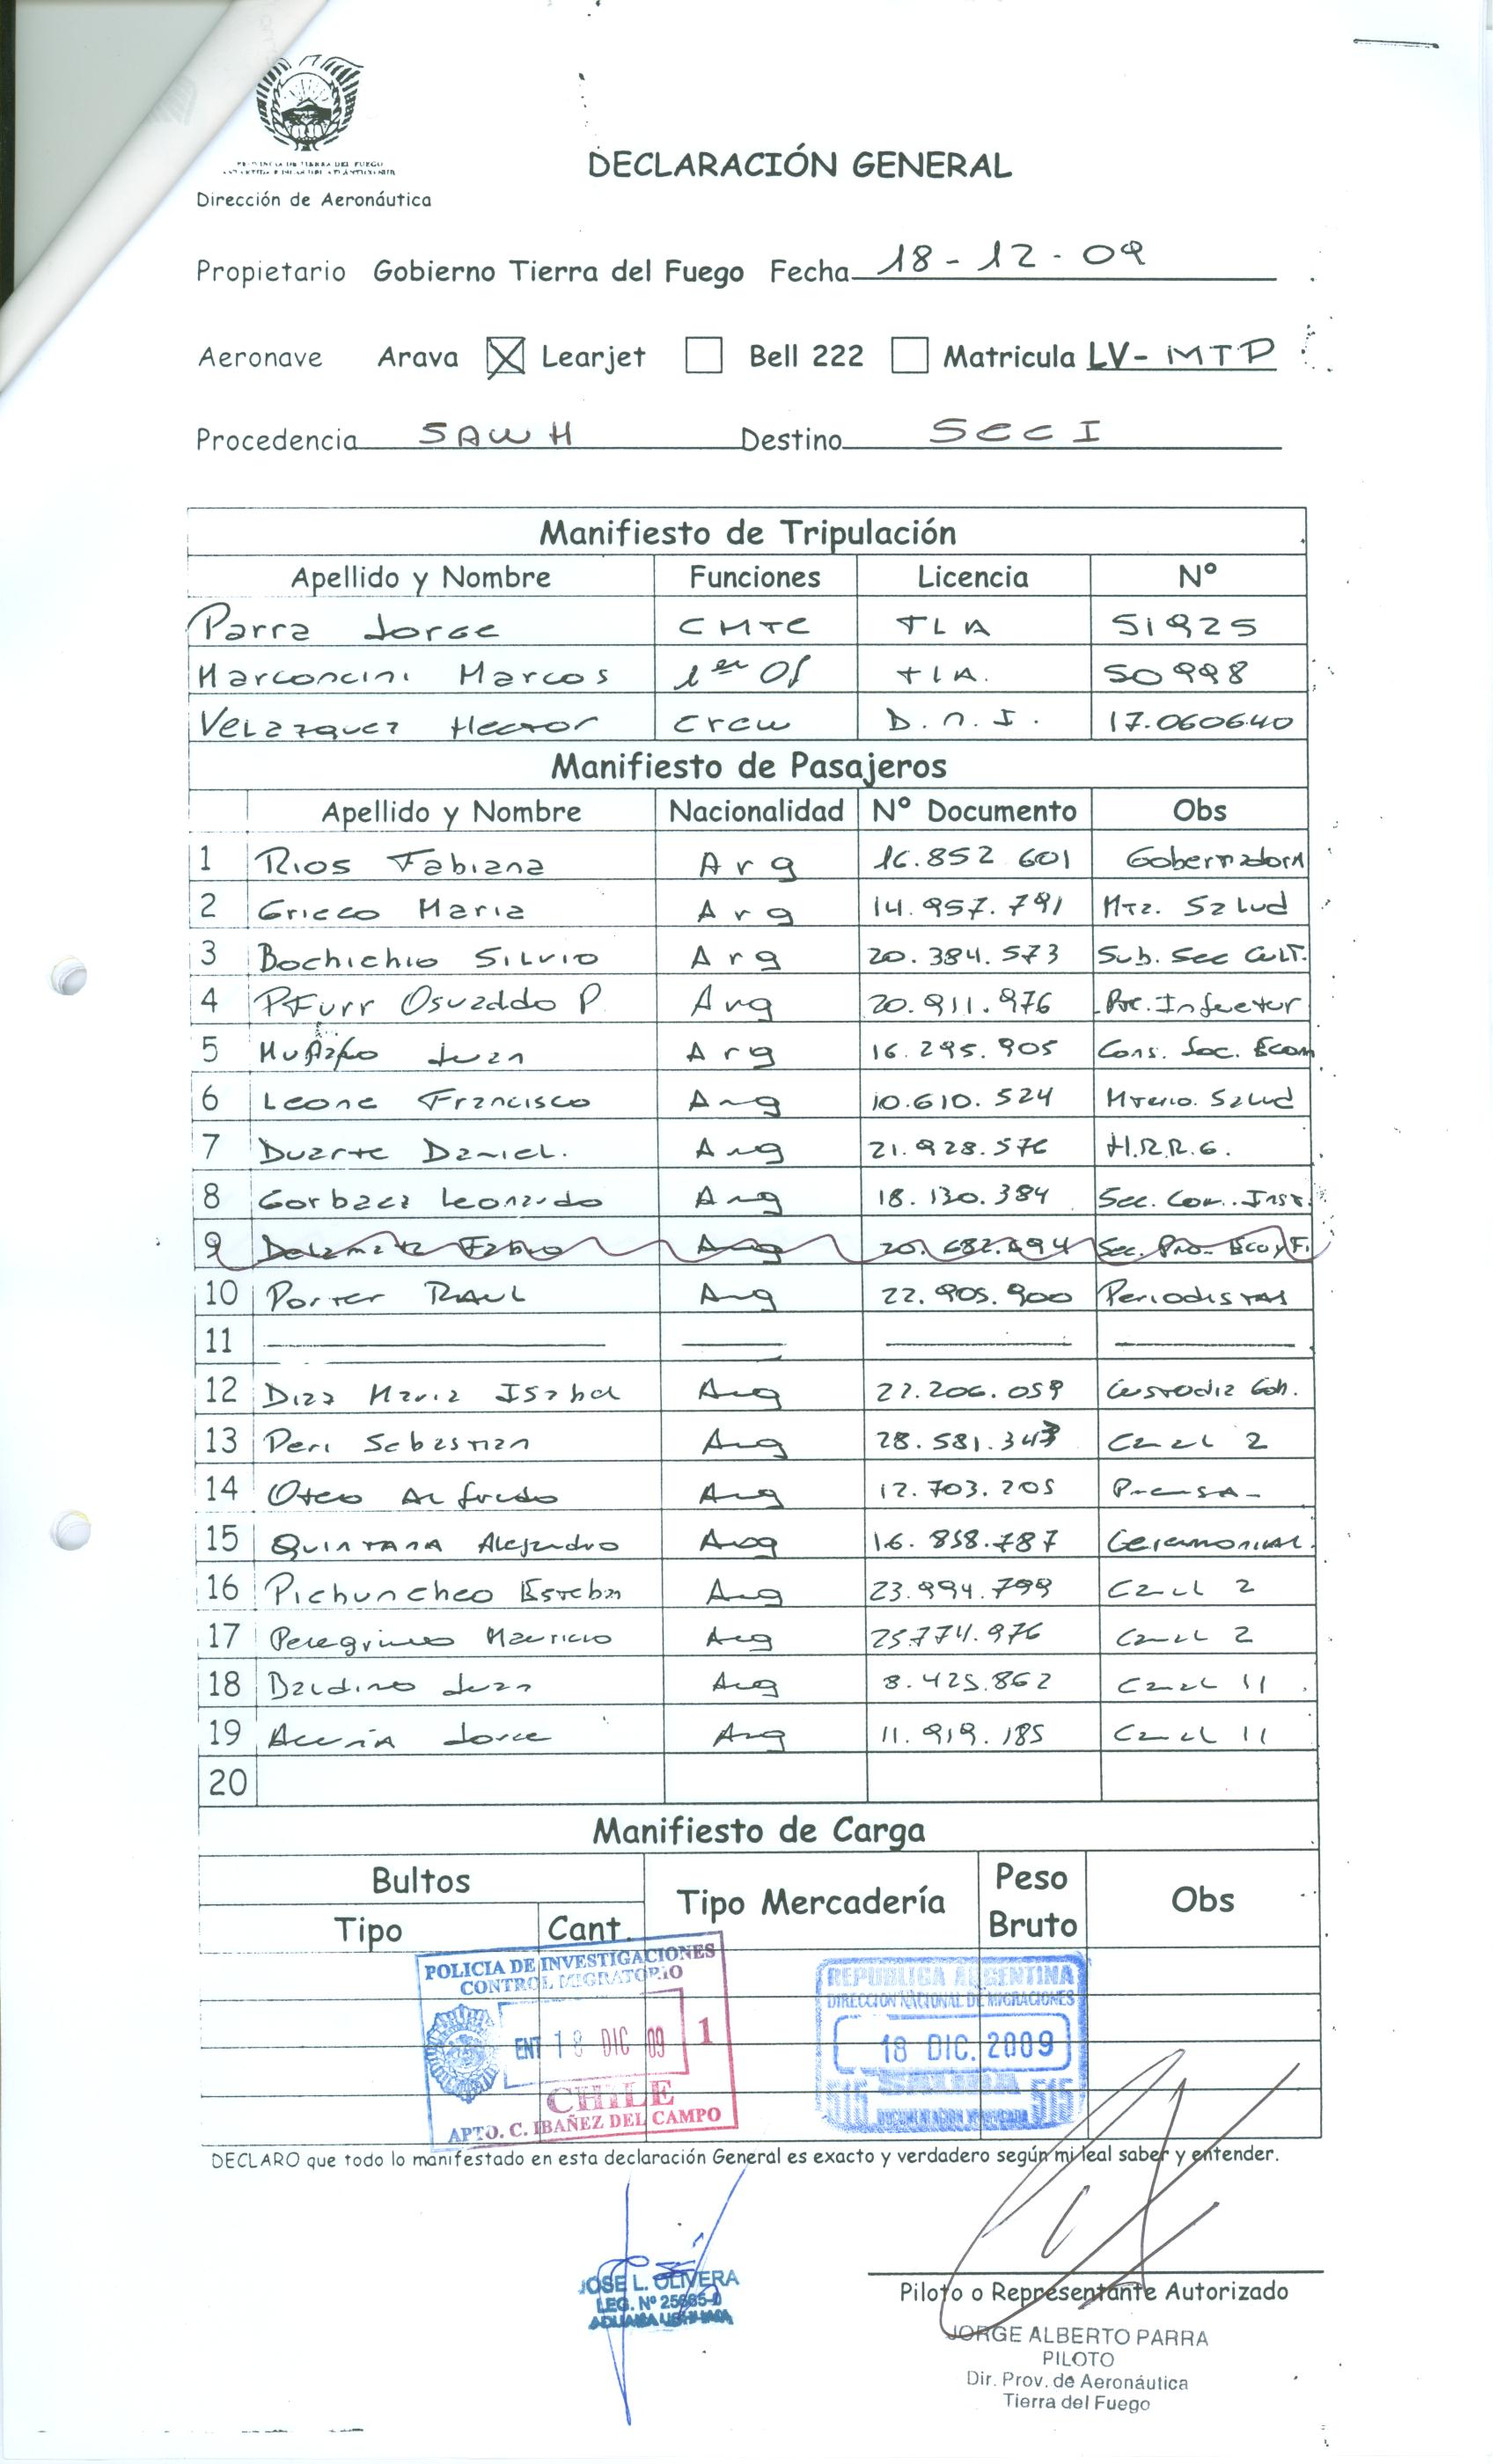 PROVINCIA DE TIERRA DEL FUEGO
Dirección de Aeronáutica
DECLARACIÓN GENERAL
Propietario Gobierno Tierra del Fuego Fecha 18-12-09
Aeronave Arava Learjet Bell 222 Matricula LV-MTP
Procedencia SAWH Destino SCCI
Manifiesto de Tripulación
Apellido y Nombre Funciones Licencia Nº
Parra Jorge CMTE TLA 51925
Marconcini Marcos 1er Of TLA. 50998
Velazquez Hector Crew D.N.I. 17.060640
Manifiesto de Pasajeros
Apellido y Nombre Nacionalidad Nº Documento Obs
1 Rios Fabiana Arg 16.852 601 Gobernadora
2 Grieco Maria Arg 14.957.791 Salud
3 Bochichio Silvio Arg 20.384.573 Sub. Sec Cult.
4 PFurr Osvaldo P Arg 20.911.976
5 Juan Arg 16.295.905 Cons. Soc. Econ
6 Leone Francisco Arg 10.610.524 Salud
7 Duarte Daniel. Arg 21.928.576 H.R.R.G.
8 Gorbacz Leonardo Arg 18.130.384 Sec. Inst.
9 Arg
10 Porter Raul Arg 22.905.900 Periodistas
11
12 Diaz Maria Isabel Arg 22.206.059 Custodia Gob.
13 Peri Sebastian Arg 28.581.343 Canal 2
14 Otero Alfredo Arg 12.703.205 Prensa-
15 Quintana Alejandro Arg 16.858.787 Ceremonial.
16 Pichuncheo Esteban Arg 23.994.799 Canal 2
17 Peregrino Mauricio Arg 25.774.976 Canal 2
18 Baldino Juan Arg 8.425.862 Canal 11
19 Jorge Arg 11.919.185 Canal 11
20
Manifiesto de Carga
Bultos Tipo Mercadería Peso Bruto Obs
Tipo Cant.
POLICIA DE INVESTIGACIONES
CONTROL MIGRATORIO
ENT 18 DIC 09 1
CHILE
APTO. C. IBAÑEZ DEL CAMPO
REPUBLICA ARGENTINA
DIRECCION NACIONAL DE MIGRACIONES
18 DIC. 2009
515 SALIDA 515
DECLARO que todo lo manifestado en esta declaración General es exacto y verdadero según mi leal saber y entender.
JOSE L. OLIVERA
LEG. Nº
ADUANA USHUAIA
Piloto o Representante Autorizado
JORGE ALBERTO PARRA
PILOTO
Dir. Prov. de Aeronáutica
Tierra del Fuego